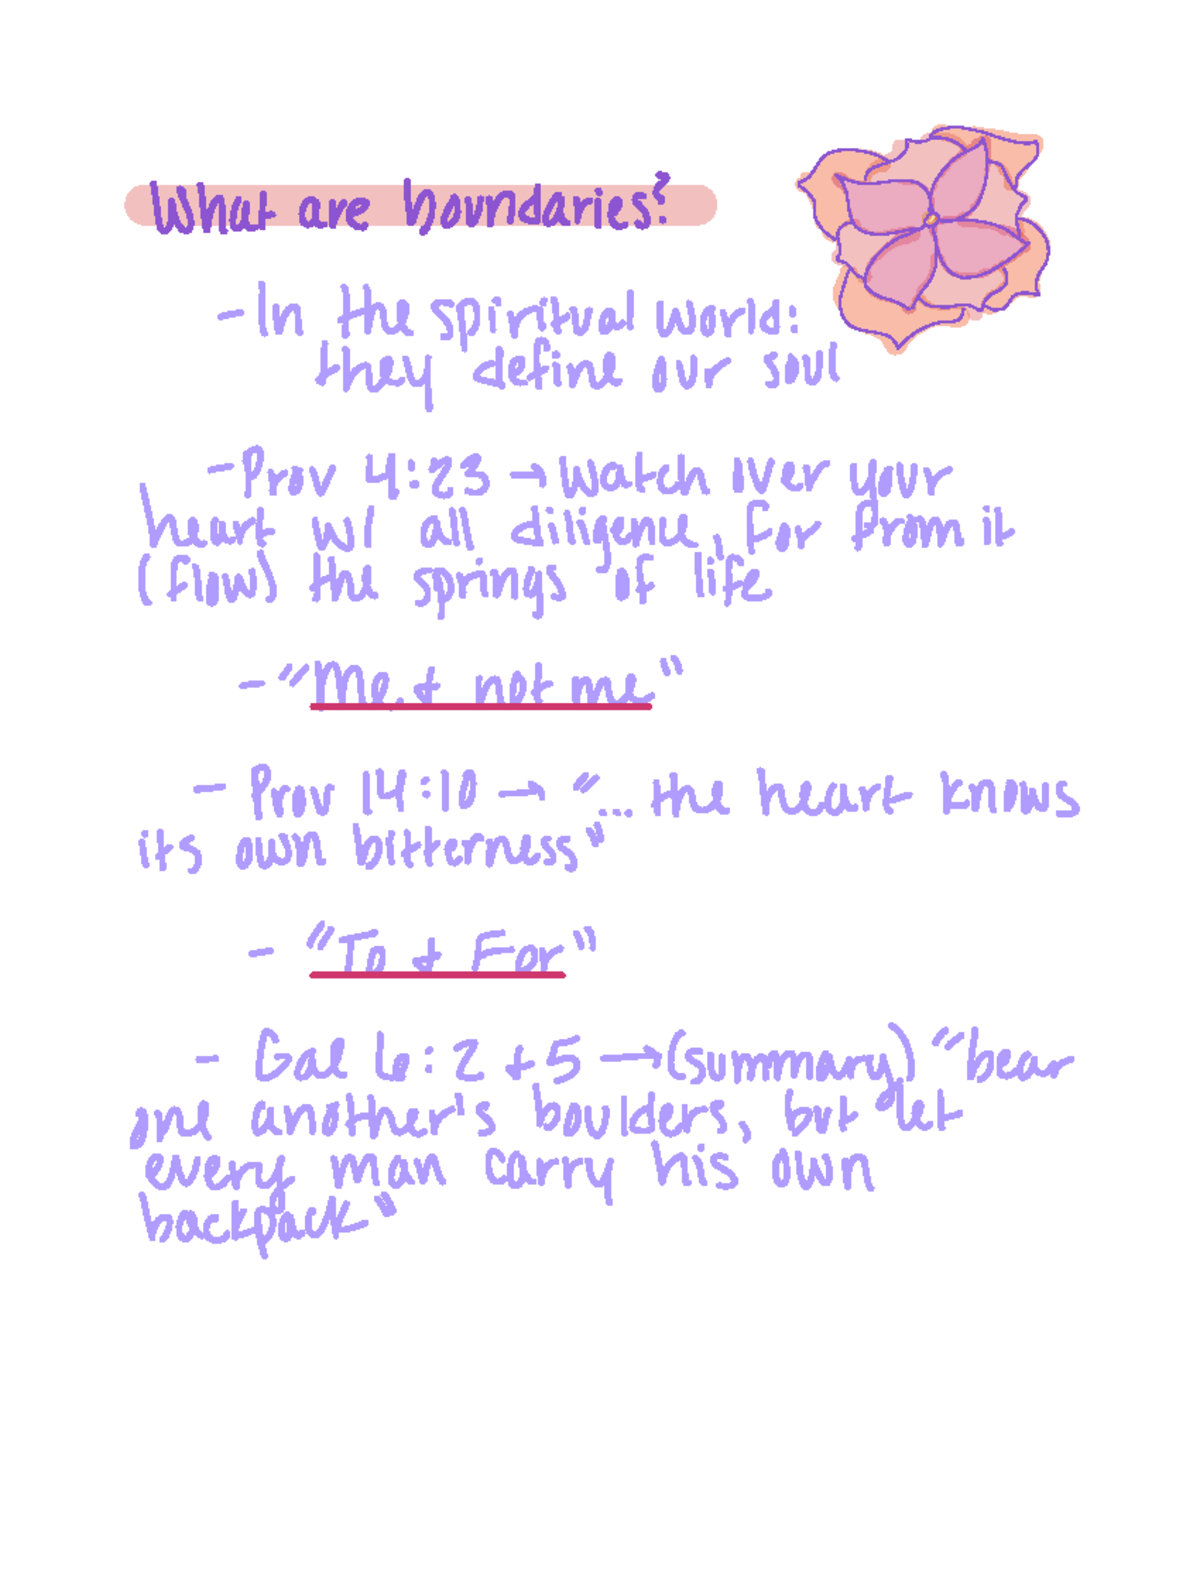 What are boundaries?
- In the spiritual world:
they define our soul
- Prov 4:23 → Watch over your
heart w/ all diligence, for from it
(flow) the springs of life
- "Me & not me"
- Prov 14:10 → "... the heart knows
its own bitterness"
- "To & For"
- Gal 6:2 + 5 → (summary) "bear
one another's boulders, but let
every man carry his own
backpack"